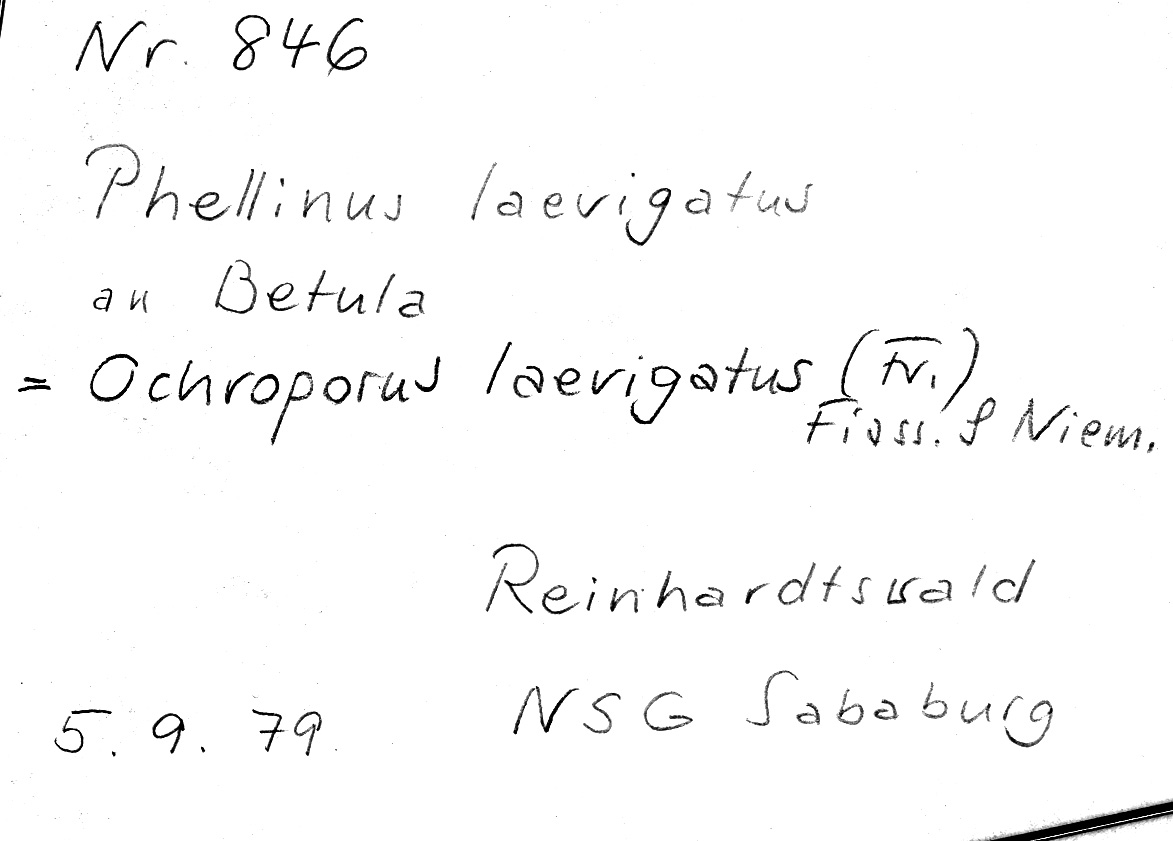 Nr. 846
Phellinus laevigatus
an Betula
= Ochroporus laevigatus (Fr.)
Fiass. & Niem.
Reinhardtswald
NSG Sababurg
5. 9. 79